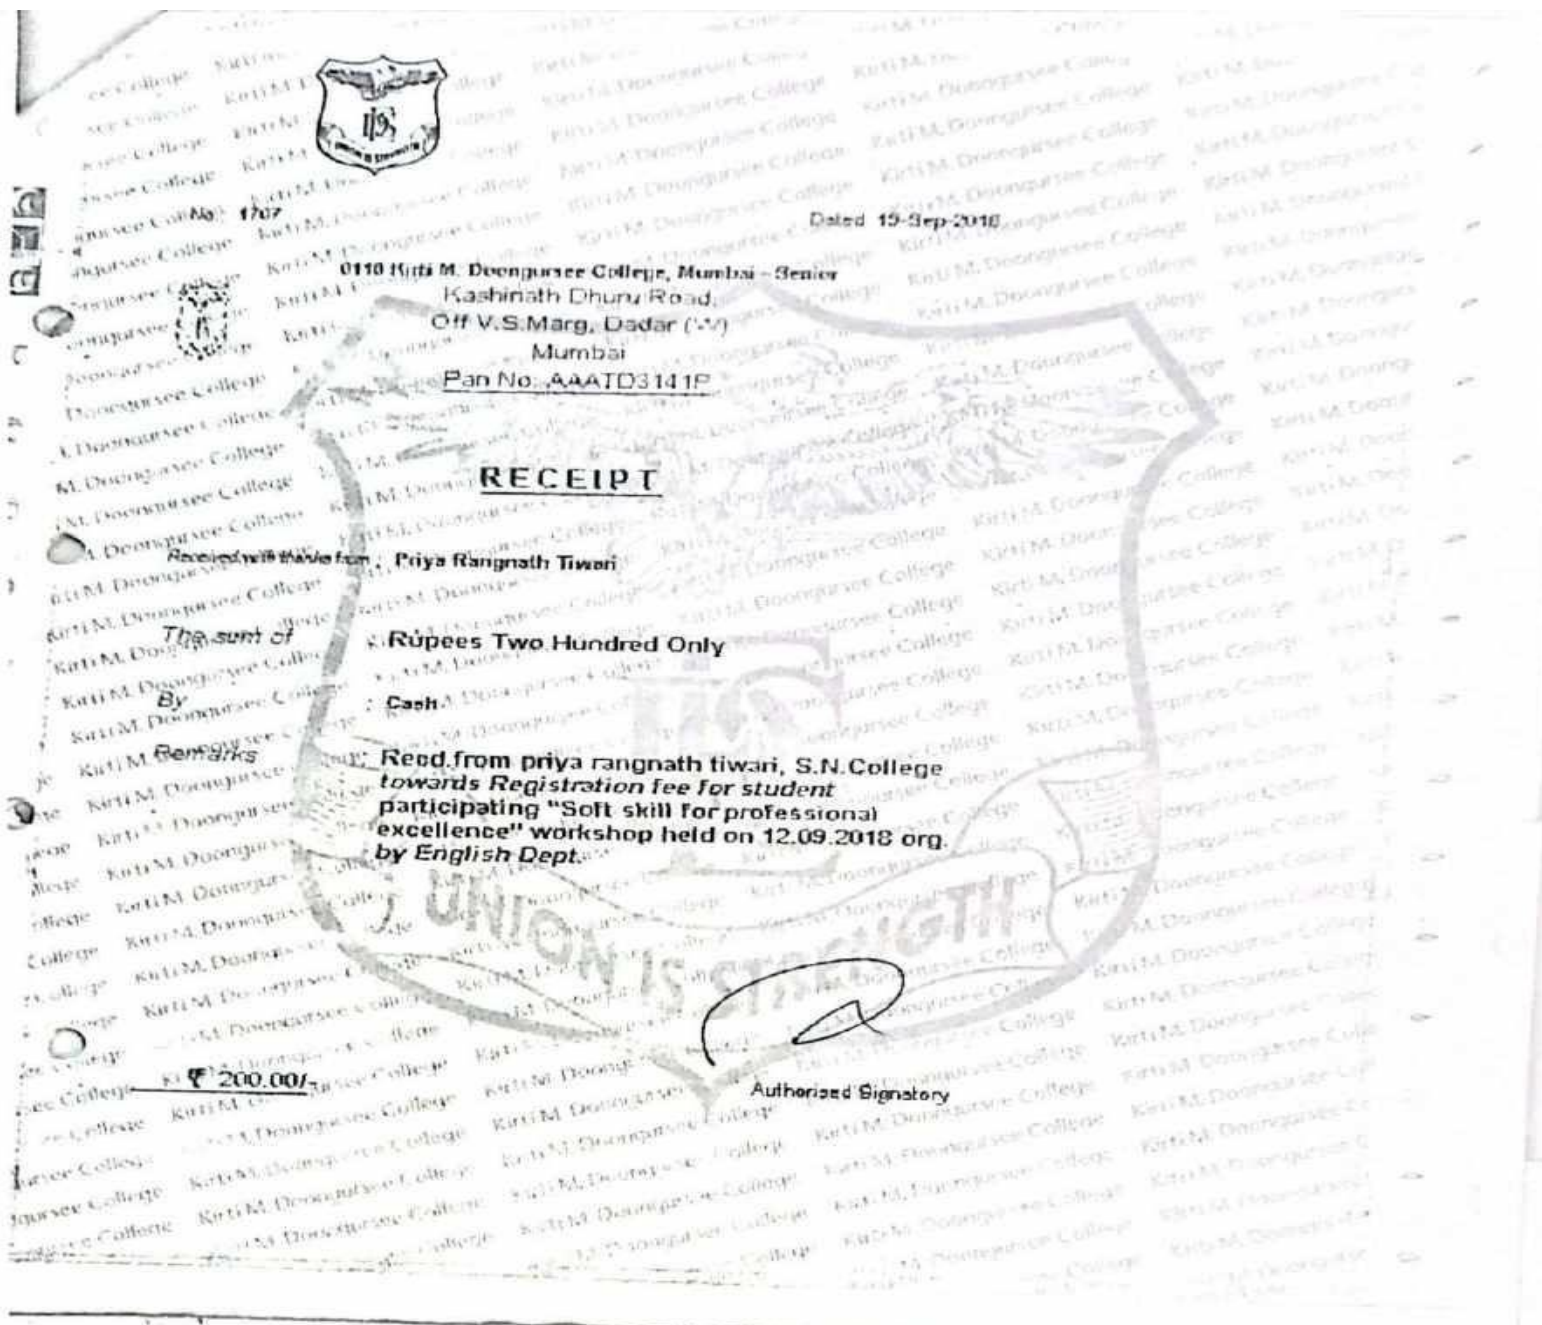 UNION IS STRENGTH
No. 1707
Dated 19-Sep-2018
0110 Kirti M. Doongursee College, Mumbai - Senior
Kashinath Dhuru Road,
Off V.S.Marg, Dadar (W)
Mumbai
Pan No: AAATD3141P
RECEIPT
Received with thanks from : Priya Rangnath Tiwari
The sum of : Rupees Two Hundred Only
By : Cash
Remarks : Recd.from priya rangnath tiwari, S.N.College
towards Registration fee for student
participating "Soft skill for professional
excellence" workshop held on 12.09.2018 org.
by English Dept.
UNION IS STRENGTH
₹ 200.00/-
Authorised Signatory